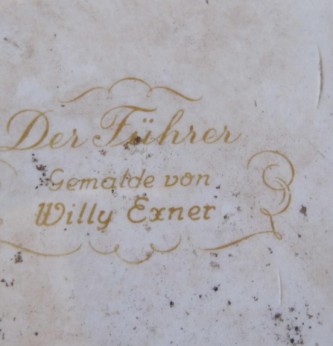 Der Führer
Gemälde von
Willy Exner